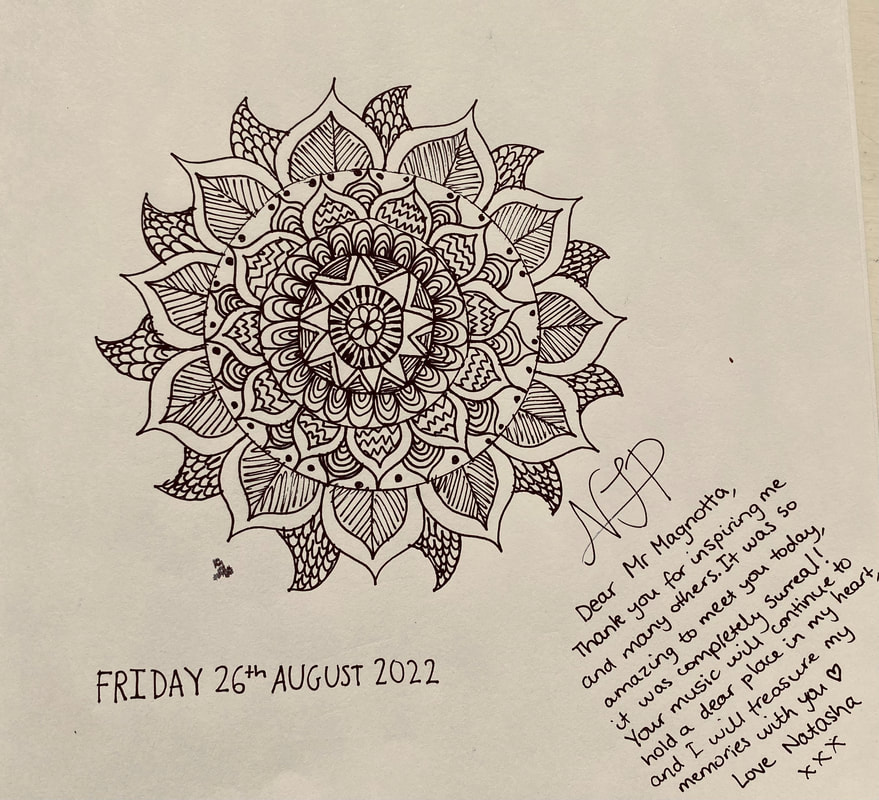 NJP
Dear Mr Magnotta,
Thank you for inspiring me
and many others. It was so
amazing to meet you today,
it was completely surreal!
Your music will continue to
hold a dear place in my heart,
and I will treasure my
memories with you ♡
Love Natasha
xxx
FRIDAY 26th AUGUST 2022